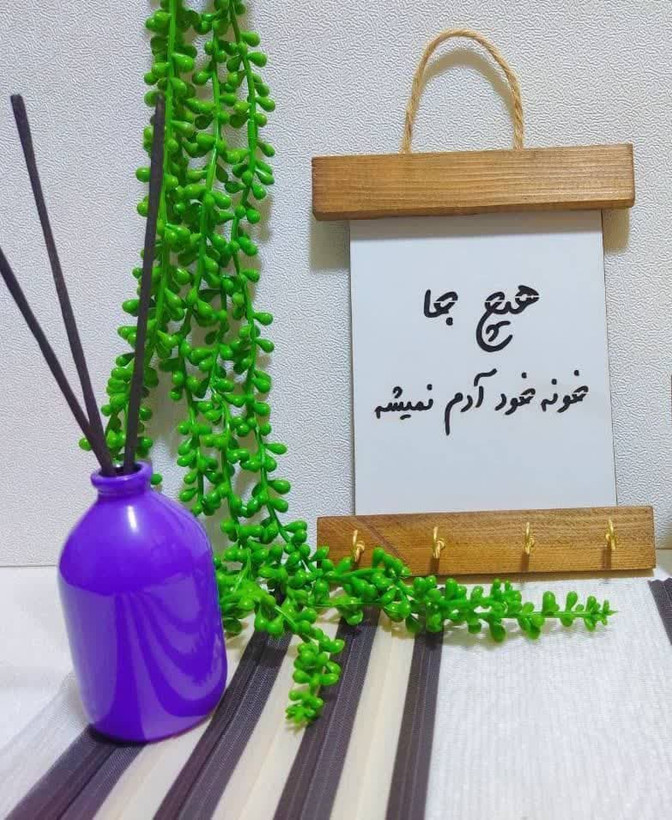 هیچ جا
خونه خود آدم نمیشه